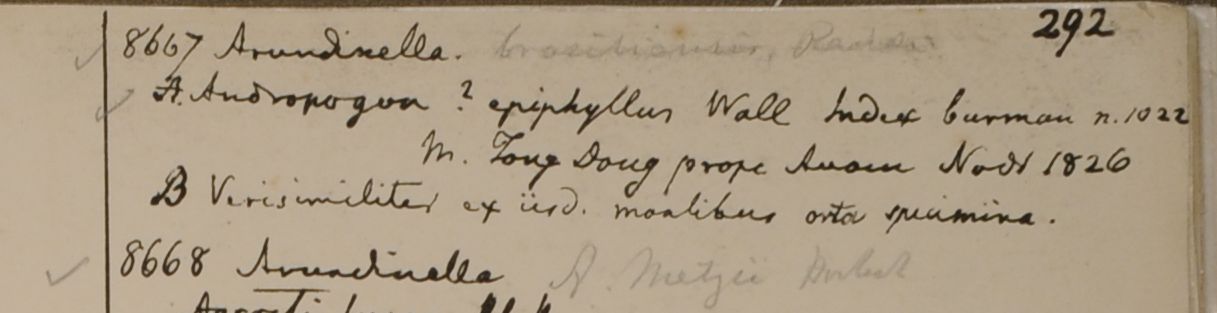 292
8667 Arundinella. brasiliensis, Raddi
A. Andropogon ? epiphyllus Wall Index burman n. 1022
M. Tong Doug prope Avam Nodr 1826
B Verisimiliter ex iisd. montibus orta specimina.
8668 Arundinella A. Metzii